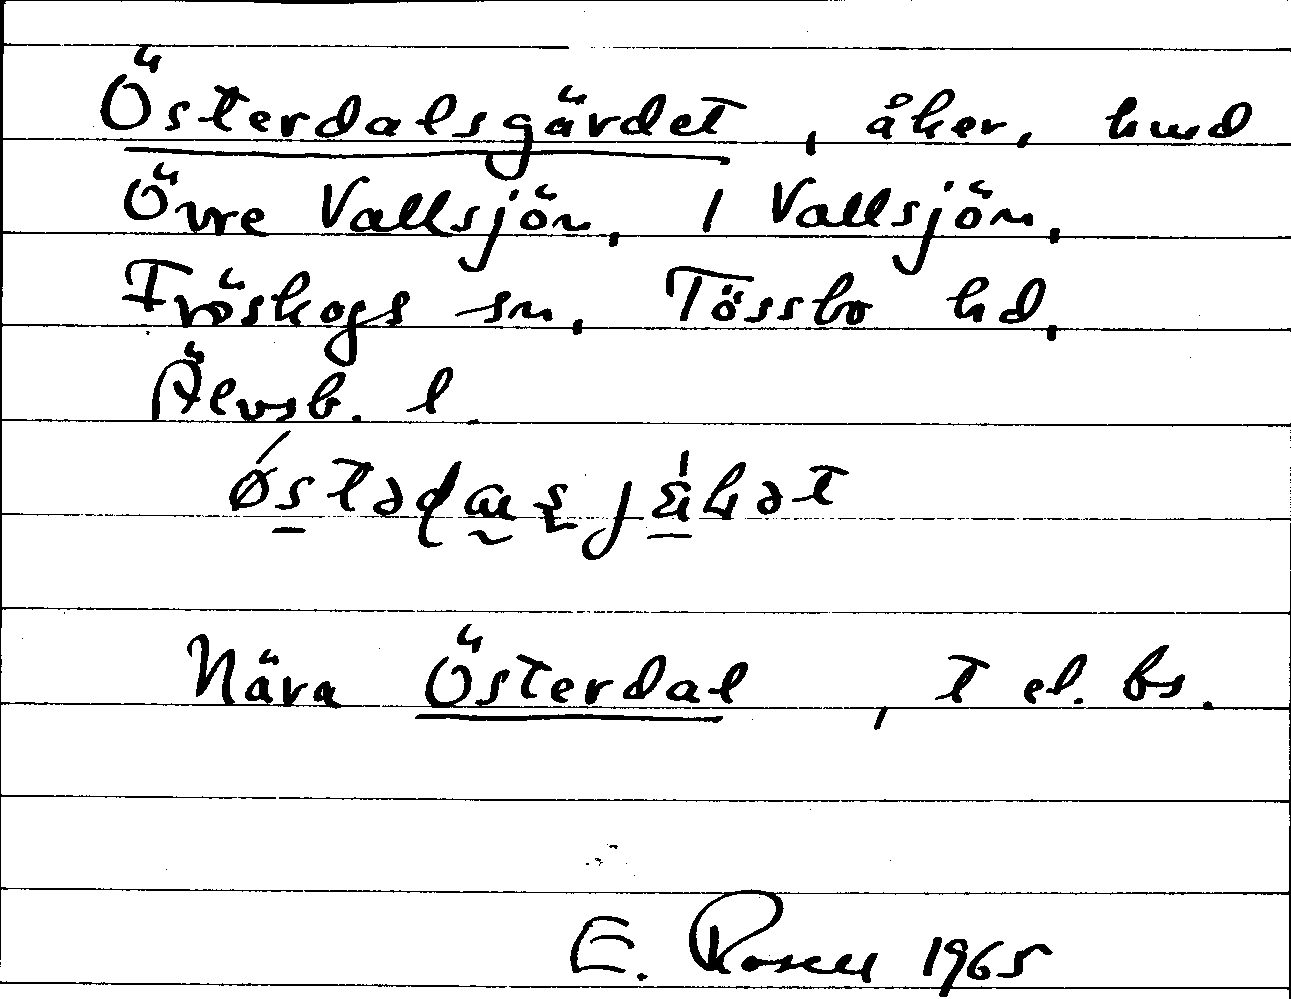 Österdalsgärdet, åker, hmd
Övre Vallsjön, 1 Vallsjön,
Fröskogs sn, Tössbo hd,
Älvsb. l.
Nära Österdal, t el. bs.
E. Rosell 1965